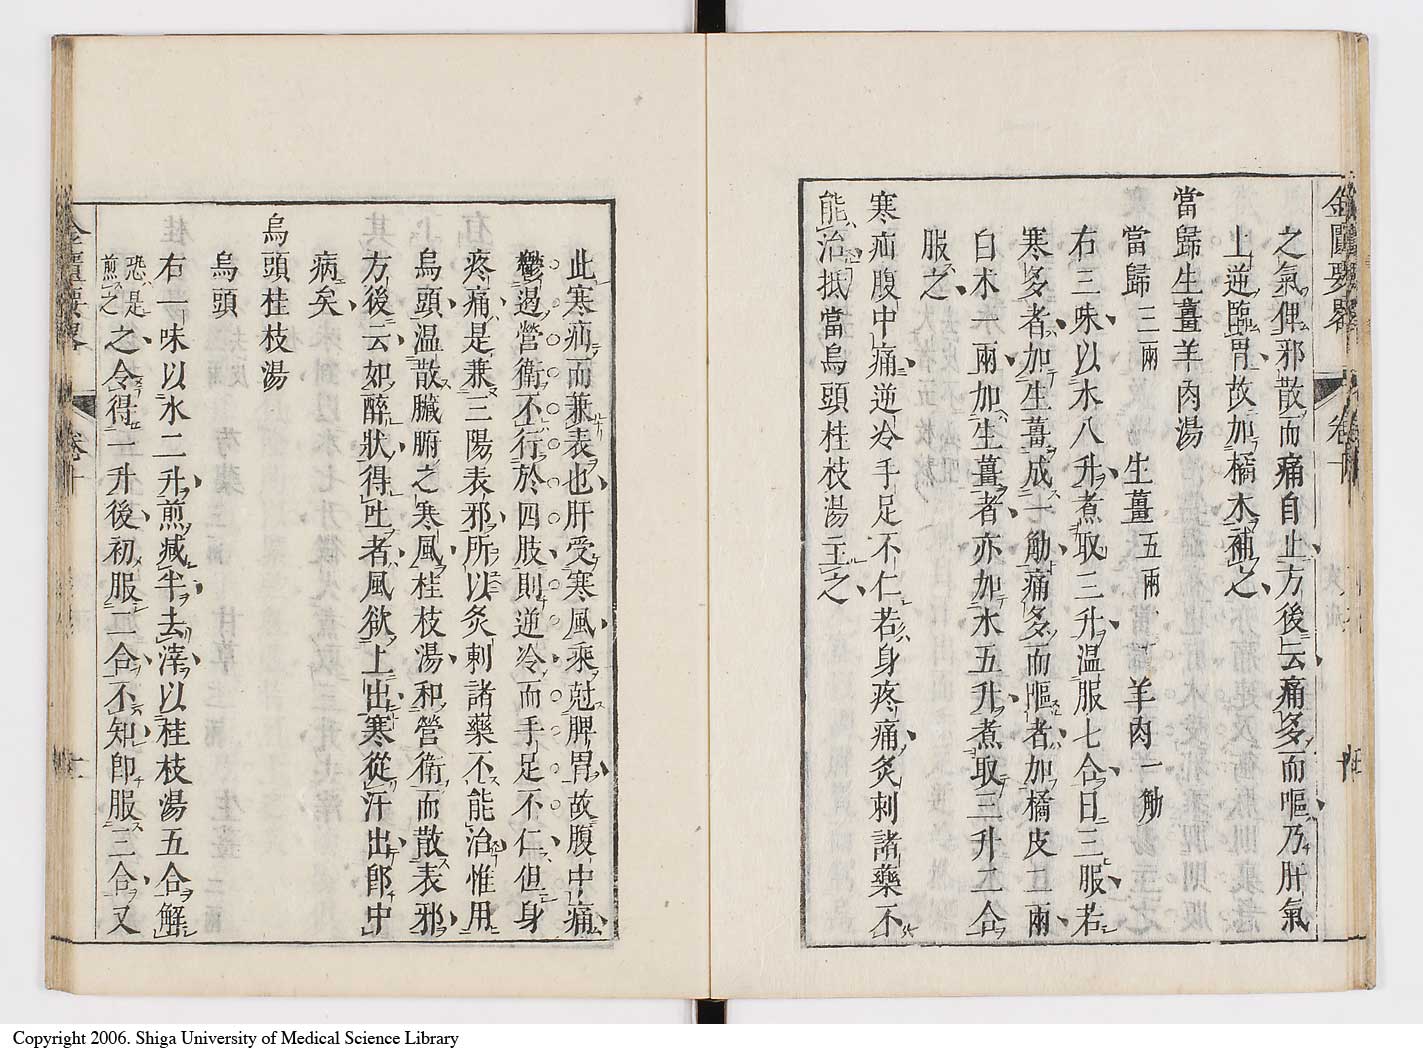 之氣俾邪散而痛自止方後云痛多而嘔乃肝氣
上逆臨胃故加橘木補之
當歸生薑羊肉湯
當歸三兩 生薑五兩 羊肉一觔
右三味以水八升煮取三升温服七合日三服若
寒多者加生薑成一觔痛多而嘔者加橘皮二兩
白木一兩加生薑者亦加水五升煮取三升二合
服之
寒疝腹中痛逆冷手足不仁若身疼痛灸刺諸藥不
能治抵當烏頭桂枝湯主之
此寒疝而兼表也肝受寒風乘尅脾胃故腹中痛
鬱遏營衛不行於四肢則逆冷而手足不仁但身
疼痛是兼三陽表邪所以灸刺諸藥不能治惟用
烏頭温散臟腑之寒風桂枝湯和營衛而散表邪
方後云如醉狀得吐者風欲上出寒從汗出卽中
病矣
烏頭桂枝湯
烏頭
右一味以水二升煎減半去滓以桂枝湯五合解
恐是煎之之令得一升後初服二合不知卽服三合又
金匱要畧 卷十
金匱要畧 卷十 十一
Copyright 2006. Shiga University of Medical Science Library